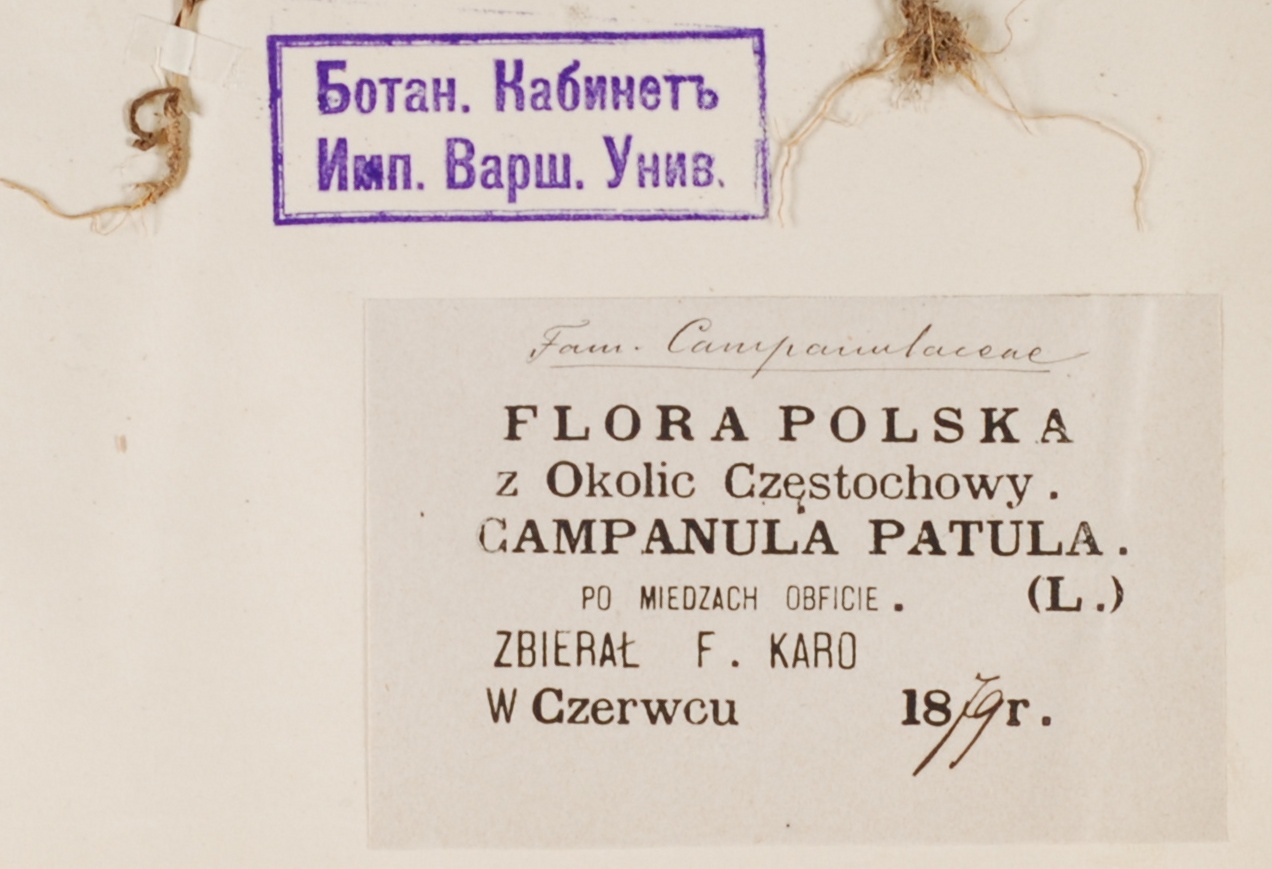 Ботан. Кабинетъ
Имп. Варш. Унив.
Fam. Campanulaceae
FLORA POLSKA
z Okolic Częstochowy.
CAMPANULA PATULA.
PO MIEDZACH OBFICIE. (L.)
ZBIERAŁ F. KARO
W Czerwcu 1879 r.